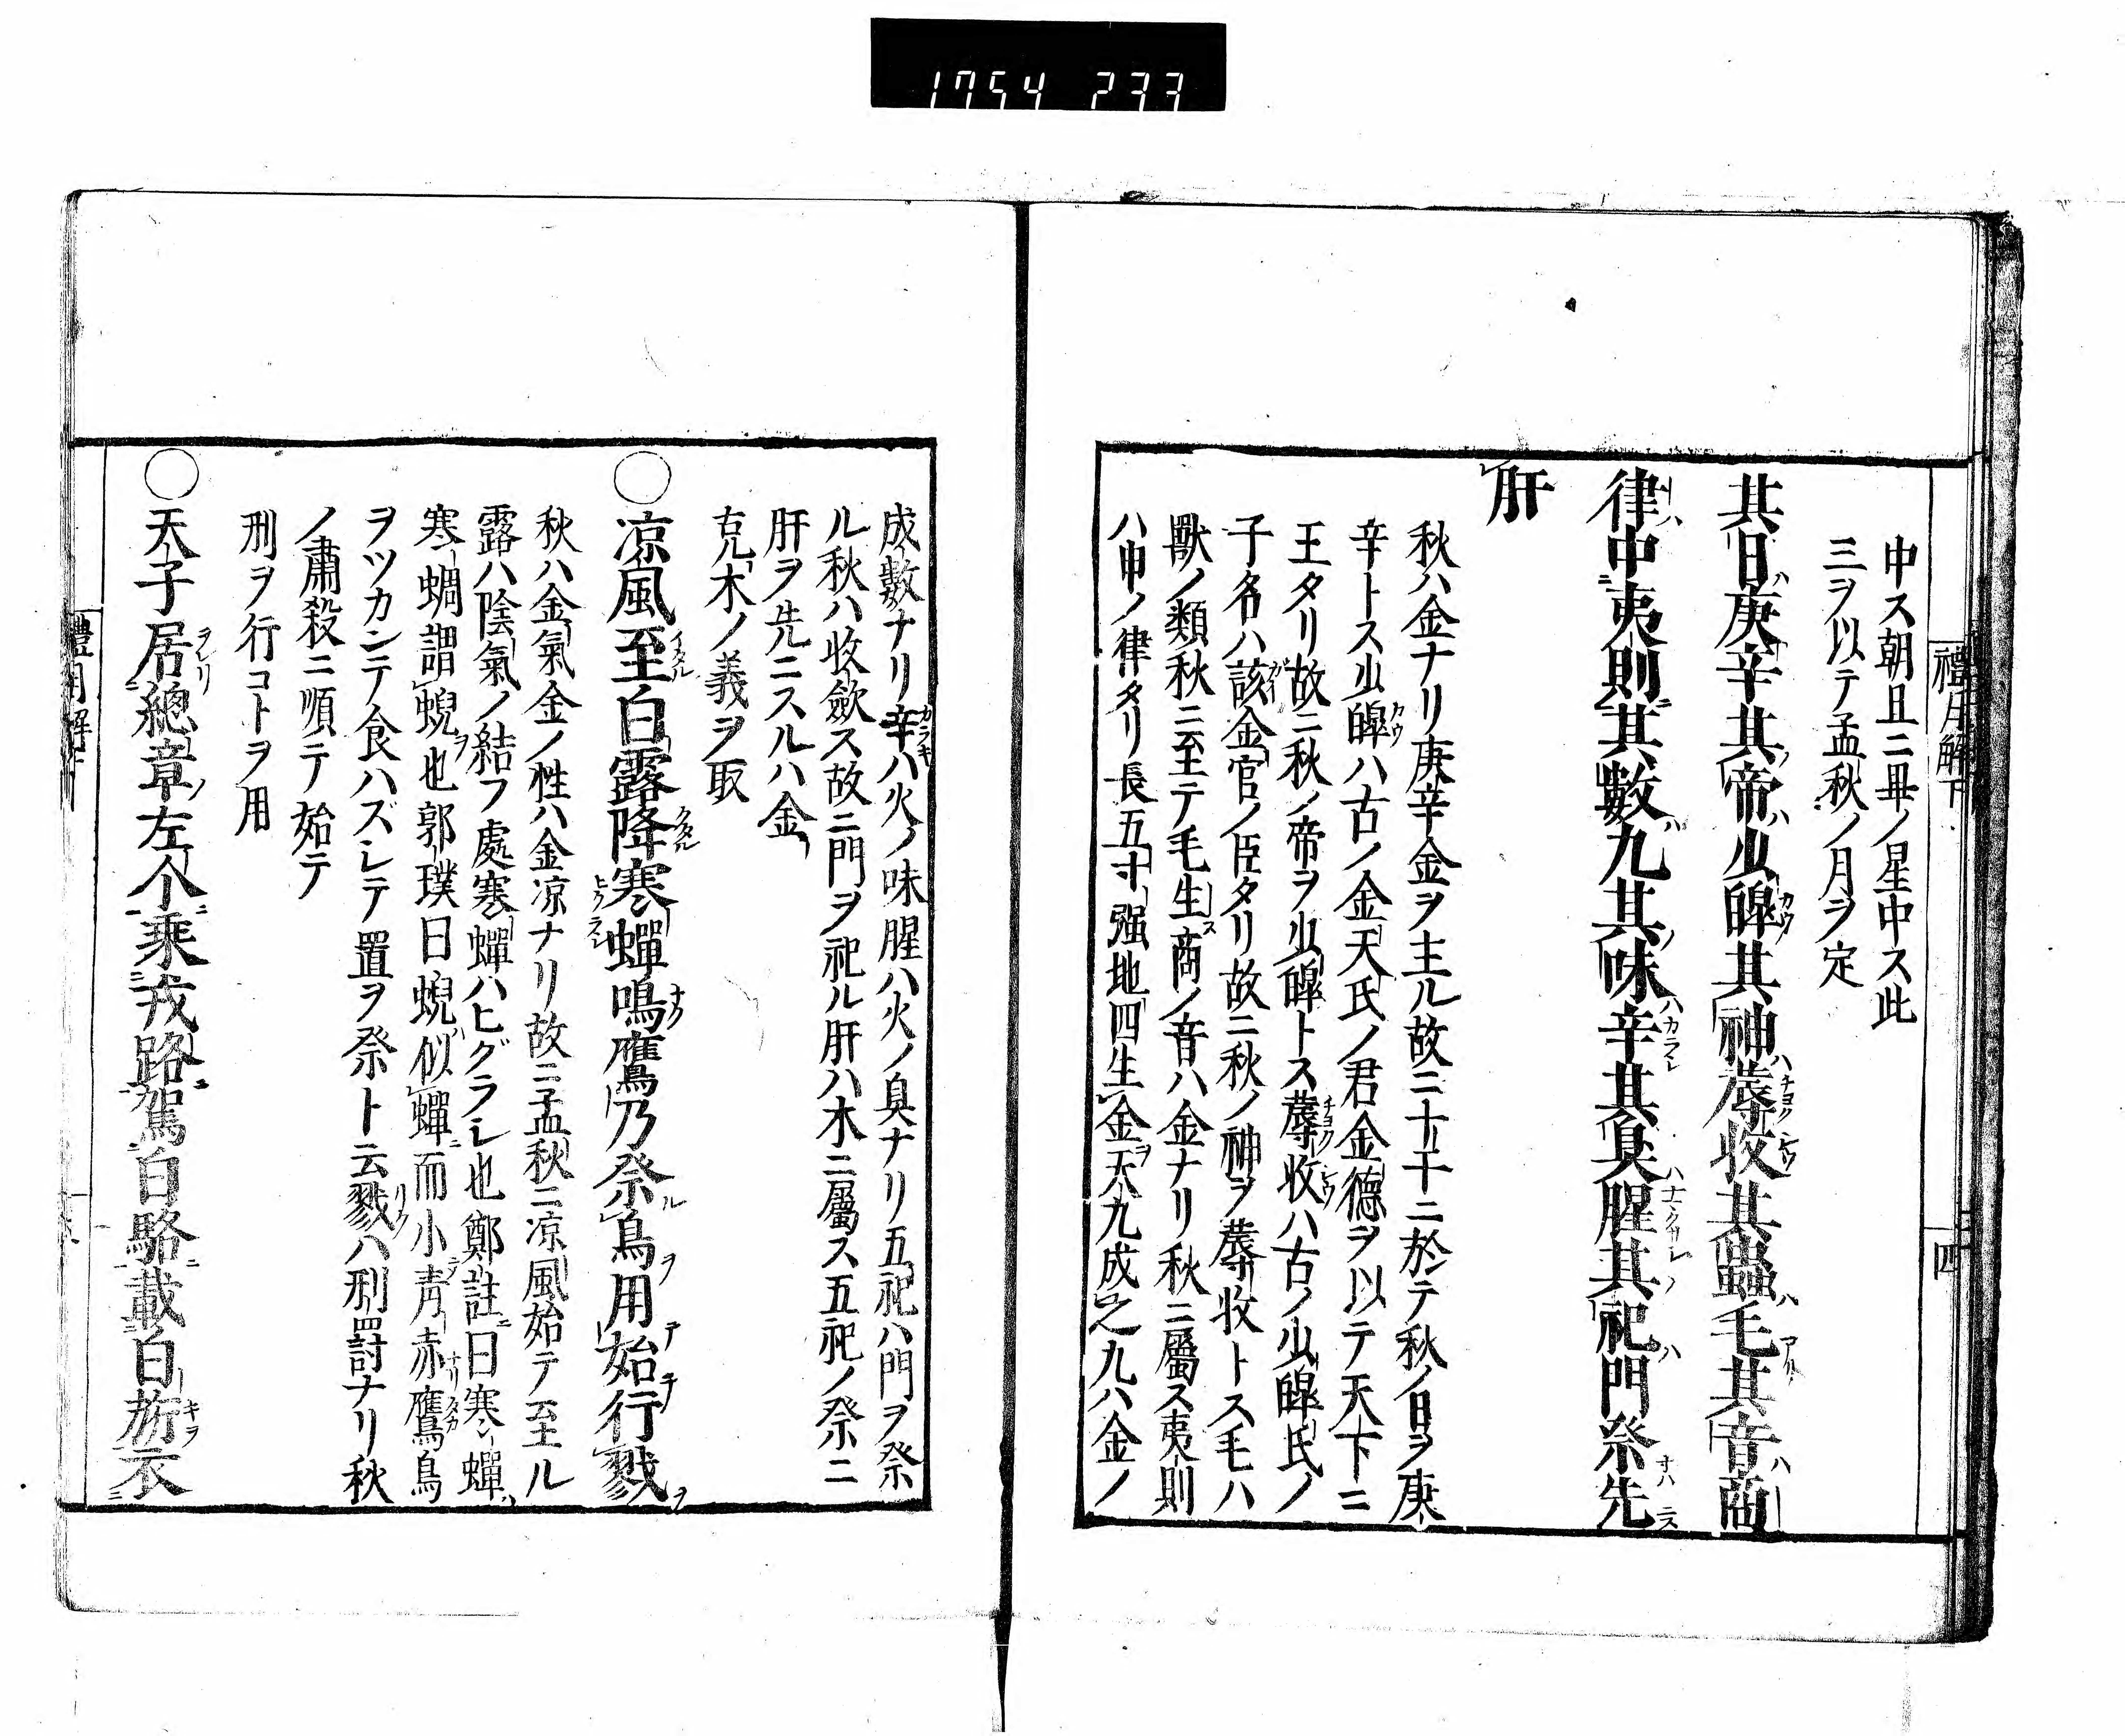 1754 233
禮月解下
四
中ス朝旦ニ畢ノ星中ス此
三ヲ以テ孟秋ノ月ヲ定
其日庚辛其帝少皥其神蓐收其蟲毛其音商
律中夷則其數九其味辛其臭腥其祀門祭先
肝
秋ハ金ナリ庚辛金ヲ主ル故ニ十干ニ於テ秋ノ日ヲ庚
辛トス少皥ハ古ノ金天氏ノ君金德ヲ以テ天下ニ
王タリ故ニ秋ノ帝ヲ少皥トス蓐收ハ古ノ少皥氏ノ
子名ハ該金官ノ臣タリ故ニ秋ノ神ヲ蓐收トス毛ハ
獸ノ類秋ニ至テ毛生商ノ音ハ金ナリ秋ニ屬ス夷則
ハ申ノ律タリ長五寸强地四生金天九成之九ハ金ノ
成數ナリ辛ハ火ノ味腥ハ火ノ臭ナリ五祀ハ門ヲ祭
ル秋ハ收斂ス故ニ門ヲ祀ル肝ハ木ニ屬ス五祀ノ祭ニ
肝ヲ先ニスルハ金
克木ノ義ヲ取
○凉風至白露降寒蟬鳴鷹乃祭鳥用始行戮
秋ハ金氣金ノ性ハ金凉ナリ故ニ孟秋ニ凉風始テ至ル
露ハ陰氣ノ結フ處寒蟬ハヒグラシ也鄭註曰寒蟬
寒蜩謂蜺也郭璞曰蜺似蟬而小青赤鷹鳥
ヲツカンテ食ハズシテ置ヲ祭ト云戮ハ刑罸討ナリ秋
ノ肅殺ニ順テ始テ
刑ヲ行コトヲ用
○天子居總章左个乘戎路駕白駱載白旂衣